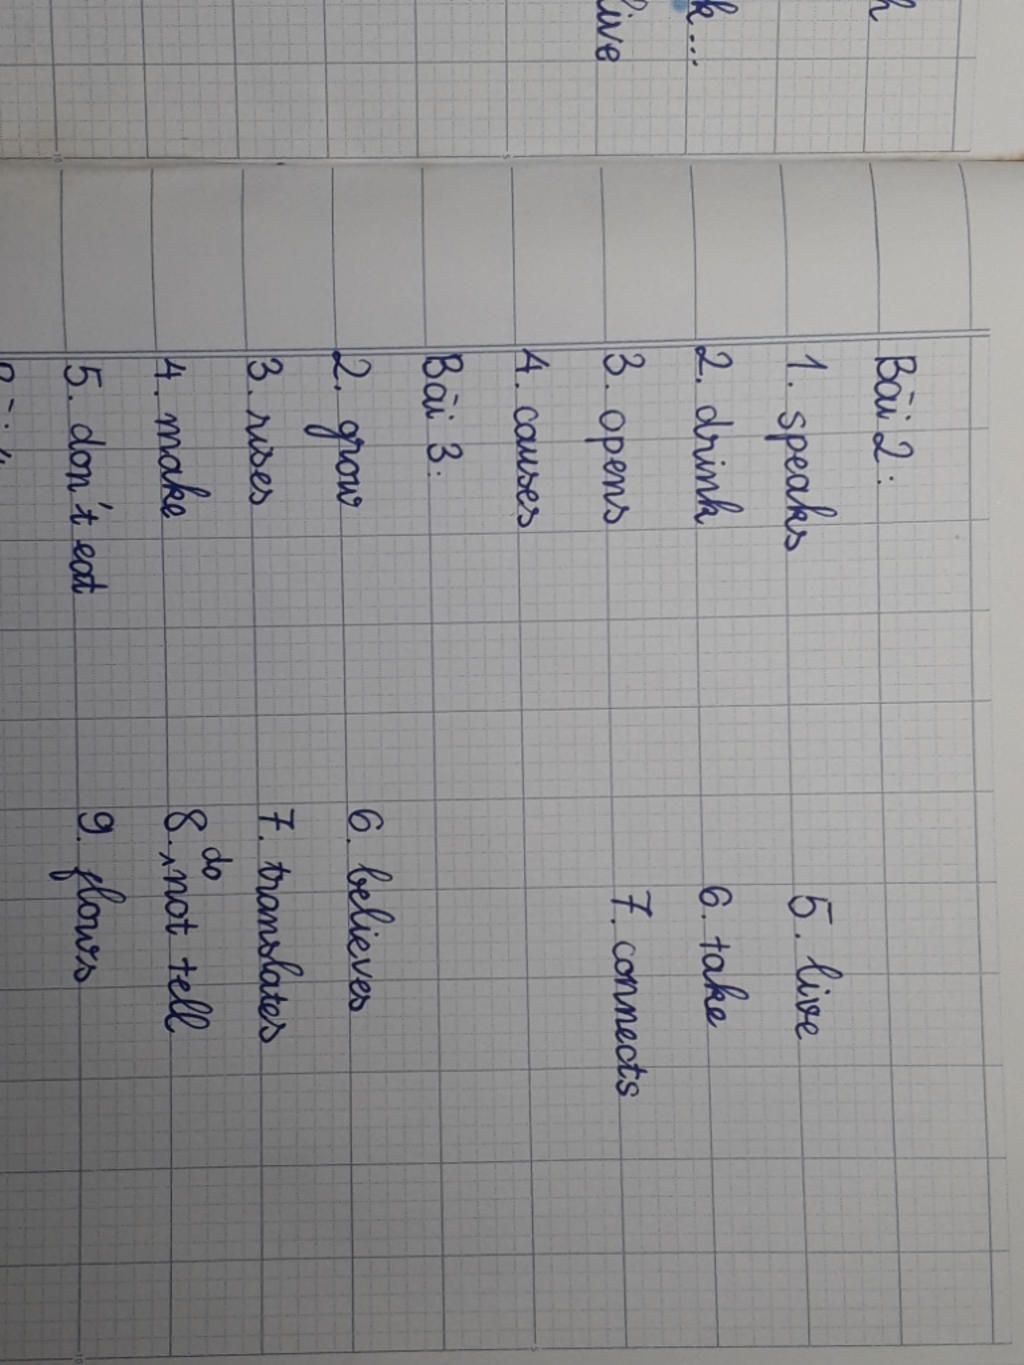 live
k...
h
Bài 2:
1. speaks
5. live
2. drink
6. take
3. opens
7. connects
4. causes
Bài 3:
2. grow
6. believes
3. rises
7. translates
4. make
8. do not tell
5. don't eat
9. flows